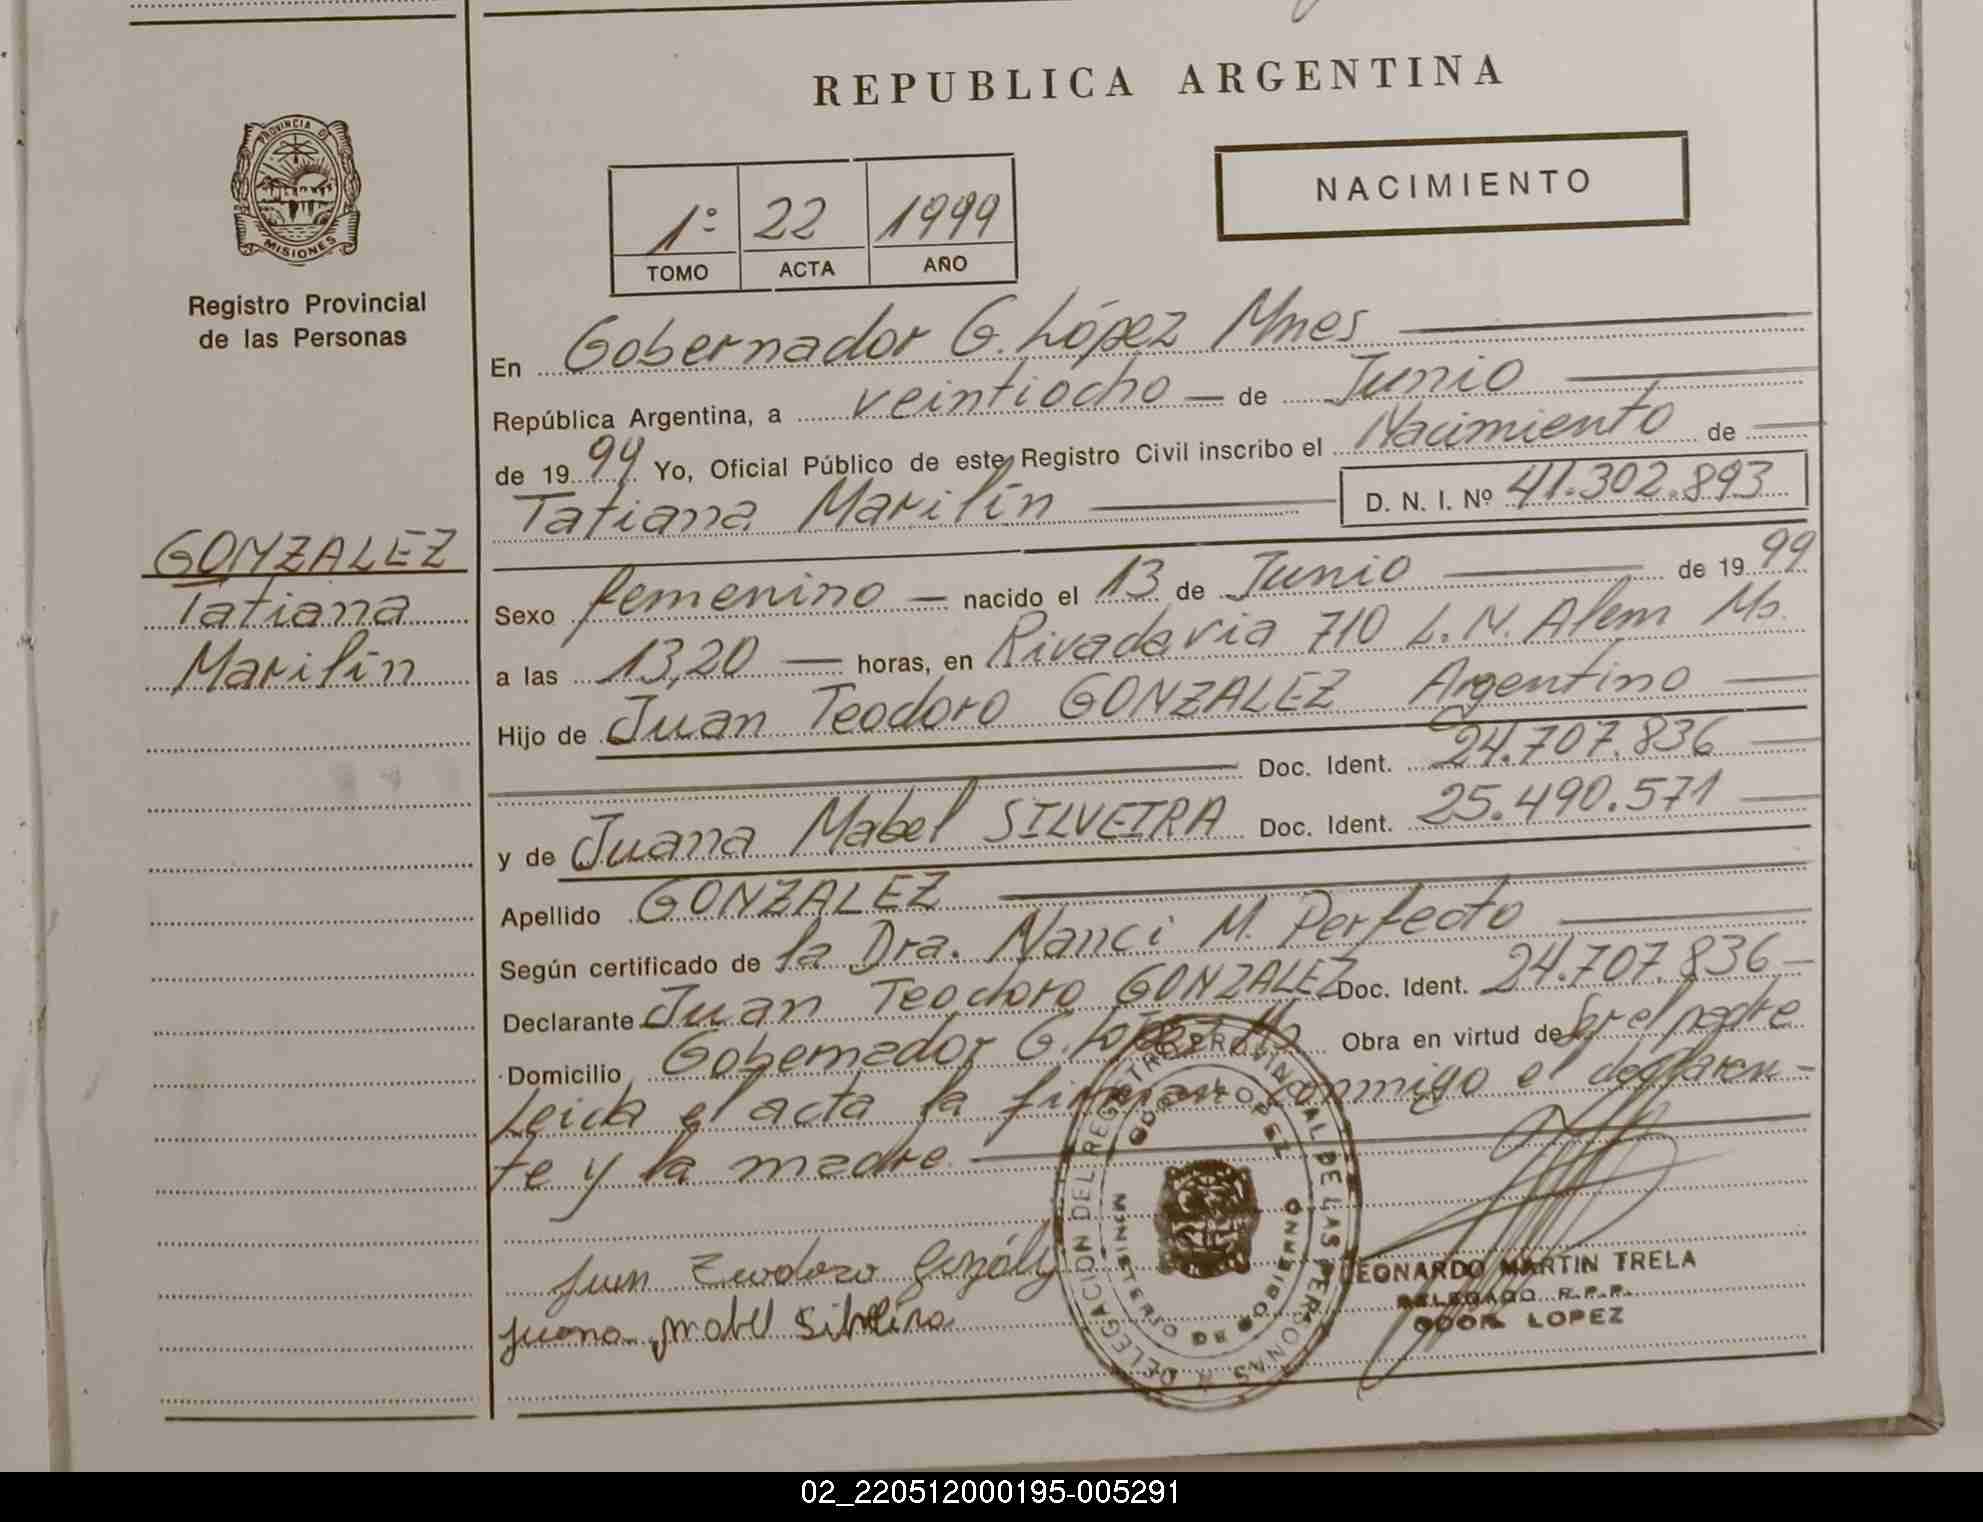 REPUBLICA ARGENTINA
PROVINCIA D
MISIONES
Registro Provincial
de las Personas
NACIMIENTO
1º 22 1999
TOMO ACTA AÑO
En Gobernador G. López Mnes
República Argentina, a veintiocho de Junio
de 1999 Yo, Oficial Público de este Registro Civil inscribo el Nacimiento de
Tatiana Marilín D. N. I. Nº 41.302.893
GONZALEZ
Tatiana
Marilín
Sexo femenino nacido el 13 de Junio de 1999
a las 13,20 horas, en Rivadavia 710 L. N. Alem Ms.
Hijo de Juan Teodoro GONZALEZ Argentino
Doc. Ident. 24.707.836
y de Juana Mabel SILVEIRA Doc. Ident. 25.490.571
Apellido GONZALEZ
Según certificado de la Dra. Nanci M. Perfecto
Declarante Juan Teodoro GONZALEZ Doc. Ident. 24.707.836
Domicilio Gobernador G. López Ms Obra en virtud de Ser el padre
Leida el acta la firman conmigo el declaran-
te y la madre.
Juan Teodoro
Juana mabel Silveira
DELEGACION DEL REGISTRO PROVINCIAL DE LAS PERSONAS
MINISTERIO DE GOBIERNO
GDOR. LOPEZ
LEONARDO MARTIN TRELA
DELEGADO R.P.P.
GDOR. LOPEZ
02_220512000195-005291